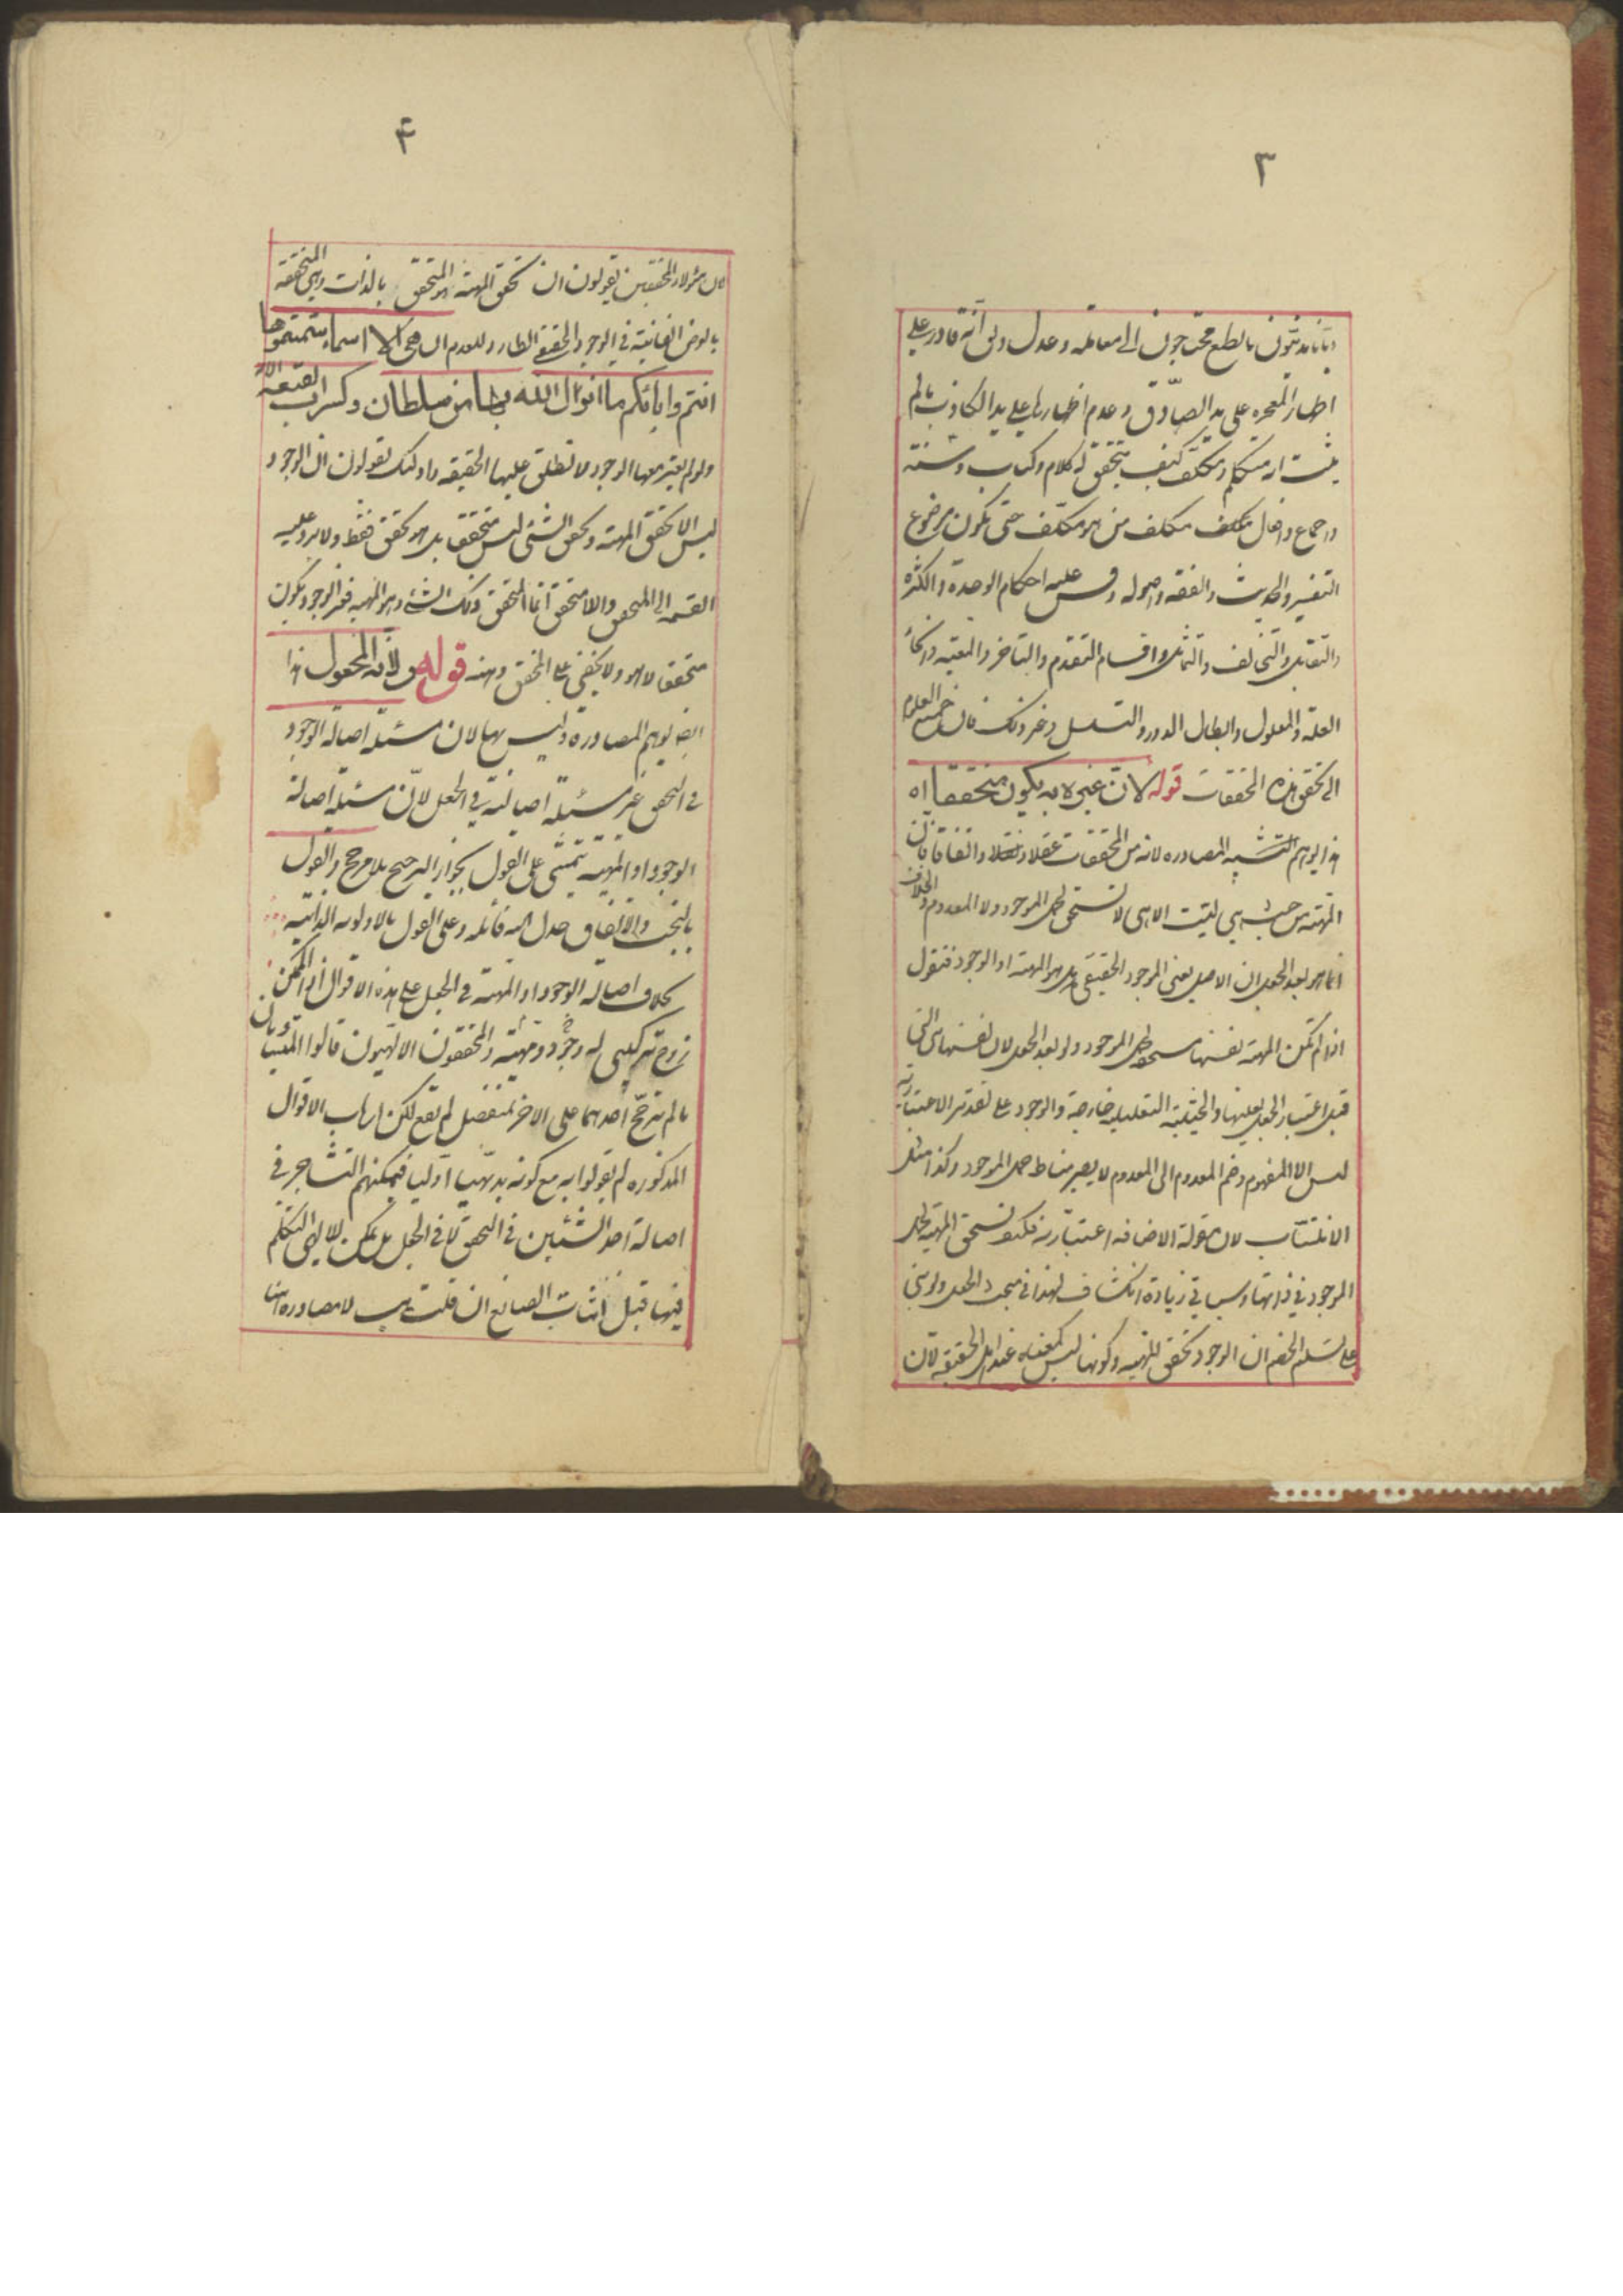 ٣
و بأننا مدنيّون بالطبع محتاجون الى معامله و عدل و لى انه قادر على
اظهار المعجزه على يد الصّادق و عدم اظهارها على يد الكاذب ما لم
يثبت انه متكلم و مكلّف كيف يتحقق له كلام و كتاب و سنته
و اجماع و افعال مكلف من هو مكلّف حتى يكون موضوع
التفسير و الحديث و الفقه و اصوله و قس عليه احكام الوحدة و الكثره
و التقابل و التخالف و التماثل و اقسام التقدم و التاخر و المعيّه و
العلة و المعلول و ابطال الدور و التسلسل و غير ذلك فان جميع العلوم
الى تحقق هذه المحققات قوله لانّ غيره به يكون متحققا اه
هذا يوهم المصادره لانه من المحققات عقلا و نقلا و اتفاقا فان
المهيّة من حيث هي ليست الا هي لا تستحق لحمل الموجود و لا المعدوم و الخلاف
انما هو بعد الجعل ان الاصل يعنى الموجود الحقيقى هل هو المهيّة او الوجود فنقول
اذا لم تكن المهيّة بنفسها مستحقة لحمل الموجود و لو بعد الجعل لان نفسها هى التى
قبل اعتبار الجعل بعينها و الحيثية التعليلية خارجة و الوجود على تقدير الاعتبارية
ليس الا المفهوم و ضم المعدوم الى المعدوم لا يصير مناط حمل الموجود و كذا مثل
الانتساب لان مقولة الاضافه اعتباريه فكيف تستحق المهيّة لحمل
الموجود فى ذاتها و سياتى زيادة انكشاف لهذا فى مبحث الجعل و لو بنى
على تسليم الخصم ان الوجود تحقق للمهيّه و كونها ليس كمعناه عند اهل الحقيقه لان
۴
هؤلاء المحققين يقولون ان تحقق المهيّة هو المتحقق بالذات و هى المتحققه
بالعرض الفانية فى الوجود الحقيقى الطارد للعدم ان هى الا اسماء سميتموها
انتم و ابائكم ما انزل الله بها من سلطان و كسراب بقيعة
و لو لم يعتبر معها الوجود لا تطلق عليها الحقيقه و اولئك يقولون ان الوجود
ليس الا تحقق المهيّه و تحقق الشئ ليس متحققا بل هو تحقق فقط و لا يرد عليه
القسمه الى المتحقق و اللامتحقق انما المتحقق ذلك الشئ و هو المهيه فغير الوجود يكون
متحققا لا هو و لا يخفى على المحقق وهنه قوله و لانه المجعول هذا
ايضا يوهم المصادرة و ليس بها لان مسئلة اصالة الوجود
فى التحقق غير مسئلة اصالته فى الجعل لانّ مسئلة اصالة
الوجود او المهيّه تتمشّى على القول بجواز الترجيح بلا مرجح و القول
بالبخت و الاتفاق خذل الله قائله و على القول بالاولويه الذاتيه
بخلاف اصالة الوجود او المهيّة فى الجعل على هذه الاقوال اذ الممكن
زوج تركيبى له وجود و مهيّة و المحققون الالهيون قالوا المتساويان
ما لم يترجّح احدهما على الاخر بمنفصل لم يقع لكن ارباب الاقوال
المذكوره لم يقولوا به مع كونه بديهيا اوليا فيمكنهم التشاجر فى
اصالة احد الشيئين فى التحقق لا فى الجعل بل يمكن للالهى التكلم
فيها قبل اثبات الصانع ان قلت هب لا مصادره هنا